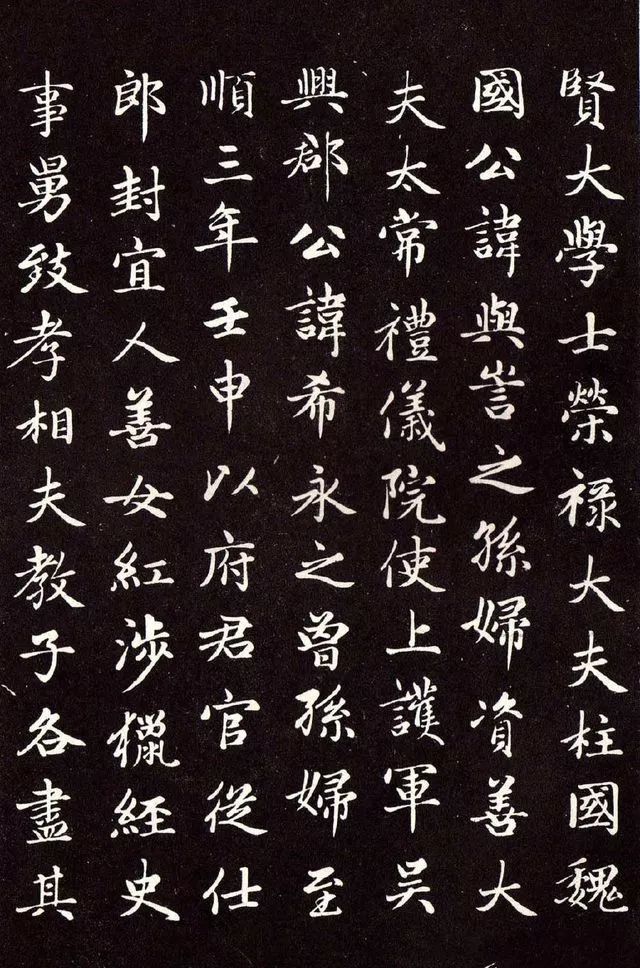 賢大學士榮祿大夫柱國魏
國公諱與訔之孫婦資善大
夫太常禮儀院使上護軍吴
興郡公諱希永之曾孫婦至
順三年壬申以府君官從仕
郎封宜人善女紅涉獵經史
事舅致孝相夫教子各盡其